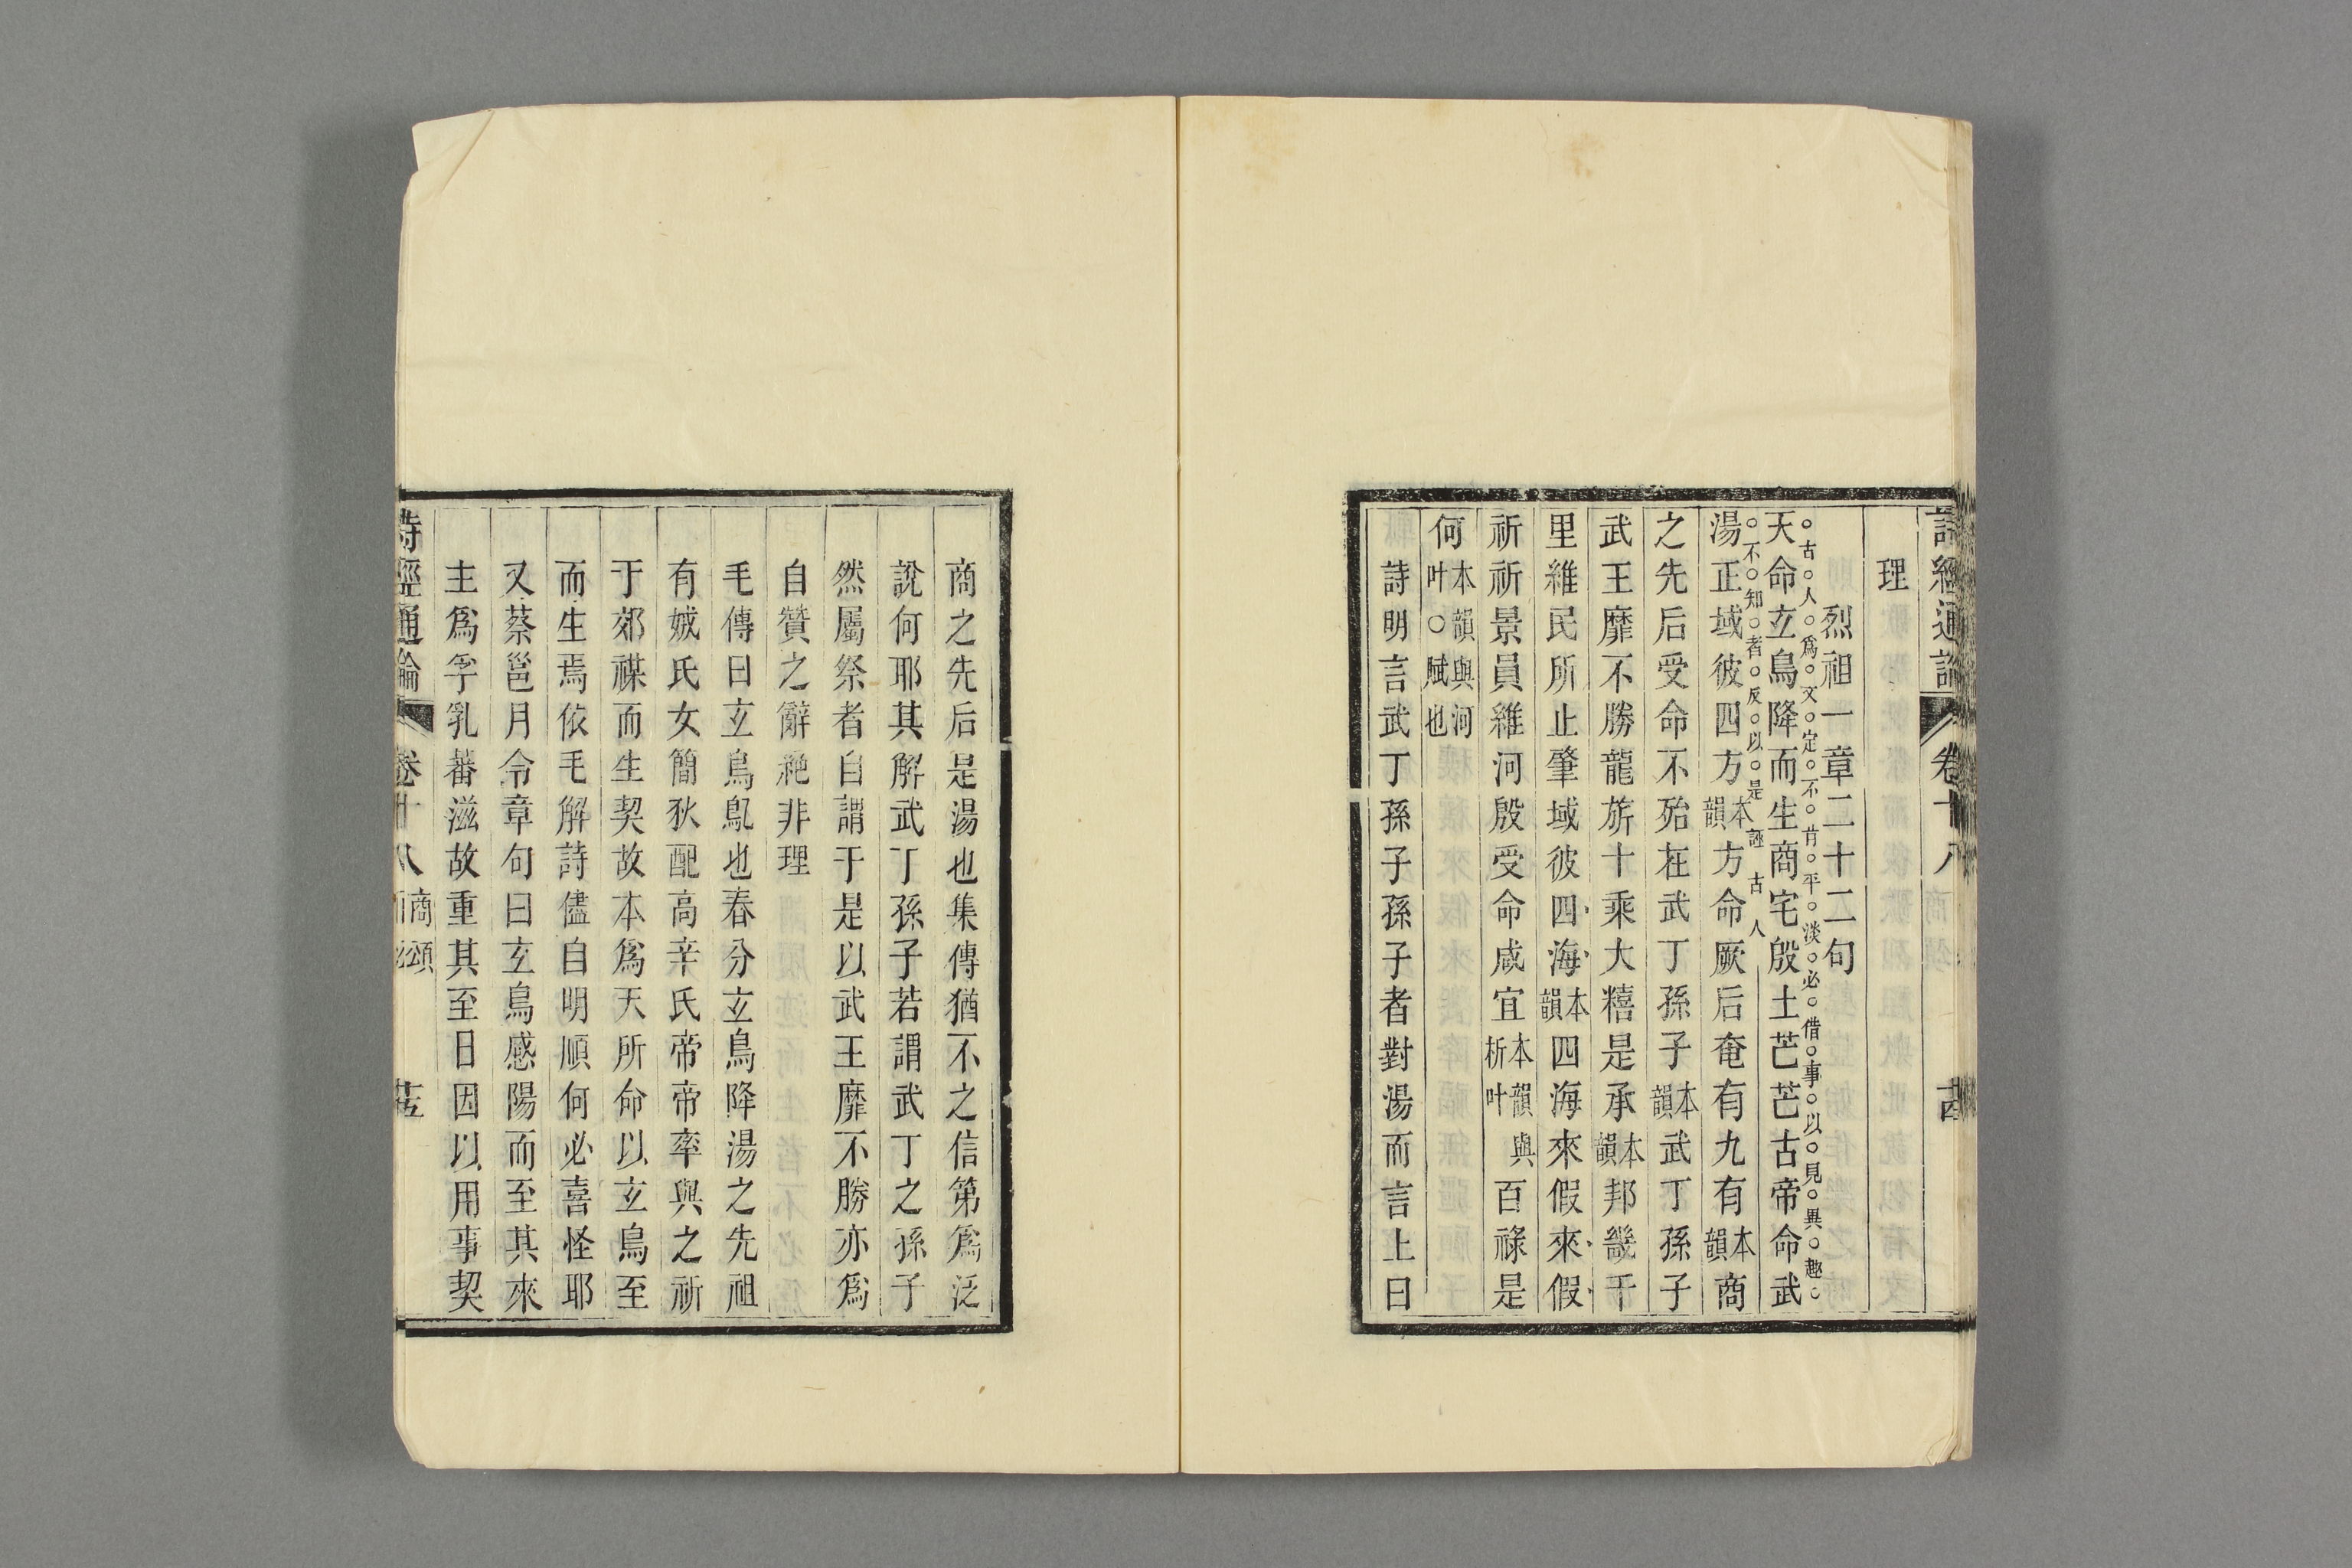 詩經通論 卷十八 古
理
烈祖一章二十二句
古人爲文定不肯平淡必借事以見異趣
天命玄鳥降而生商宅殷土芒芒古帝命武
不知者反以是誣古人
湯正域彼四方本韻方命厥后奄有九有本韻商
之先后受命不殆在武丁孫子本韻武丁孫子
武王靡不勝龍旂十乘大糦是承本韻邦畿千
里維民所止肇域彼四海本韻四海來假來假
祈祈景員維河殷受命咸宜本韻與析叶百祿是
何本韻與河叶○賦也
詩明言武丁孫子孫子者對湯而言上曰
商之先后是湯也集傳猶不之信第爲泛
說何耶其解武丁孫子若謂武丁之孫子
然屬祭者自謂于是以武王靡不勝亦爲
自贊之辭絕非理
毛傳曰玄鳥鳦也春分玄鳥降湯之先祖
有娀氏女簡狄配高辛氏帝帝率與之祈
于郊禖而生契故本爲天所命以玄鳥至
而生焉依毛解詩儘自明順何必喜怪耶
又蔡邕月令章句曰玄鳥感陽而至其來
主爲孚乳蕃滋故重其至日因以用事契
詩經通論 卷十八 商頌